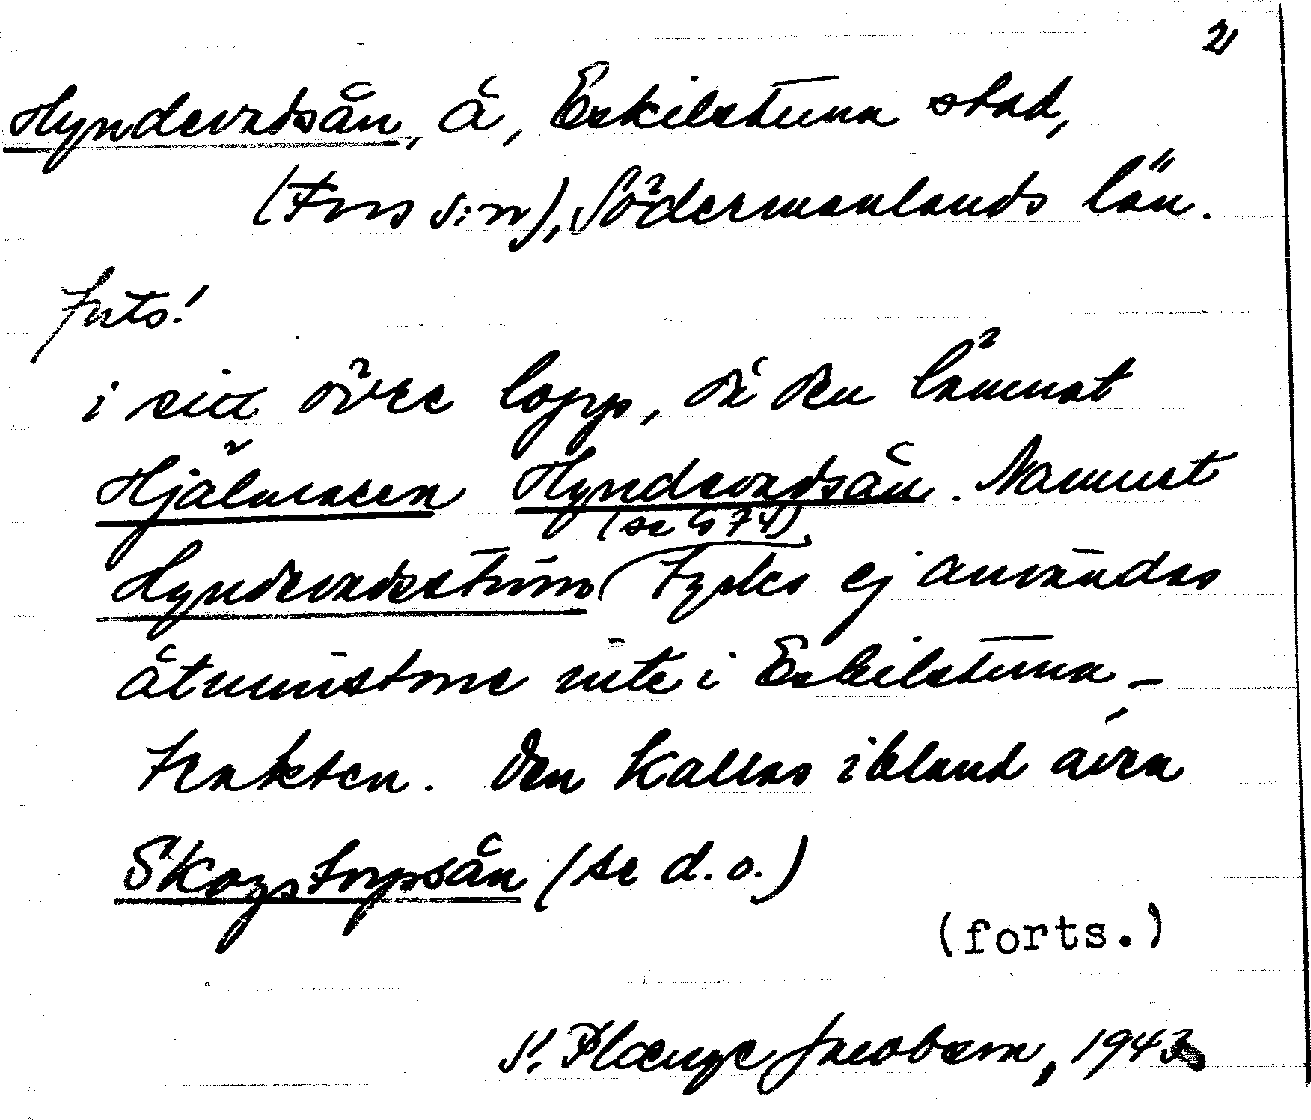 2
Hyndevadsån, å, Eskilstuna stad,
(Fors s:n), Södermanlands län.
forts!
i sitt övre lopp, då den lämnat
Hjälmaren Hyndevadsån. Namnet
(se s 74)
Hyndevadsström tycks ej användas
åtminstone inte i Eskilstuna-
trakten. Den kallas ibland även
Skogstorpsån (se d.o.)
(forts.)
S. Plænge Jacobson, 1943